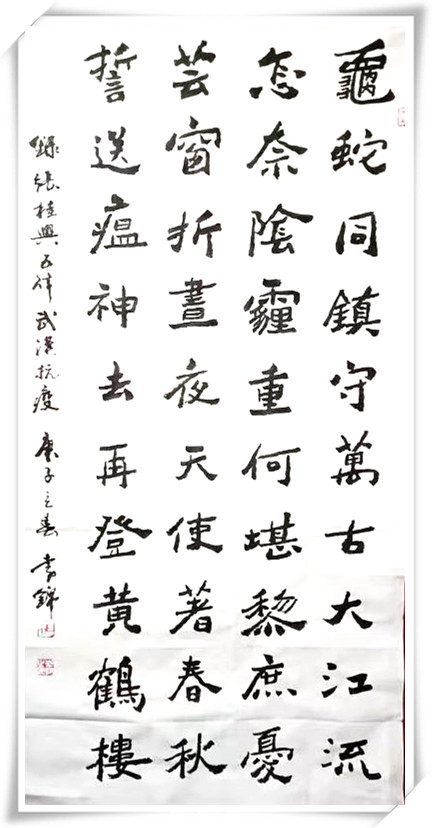 龜蛇同鎮守萬古大江流
怎奈陰霾重何堪黎庶憂
芸窗折晝夜天使著春秋
誓送瘟神去再登黃鶴樓
錄張桂興五律武漢抗疫 庚子之春